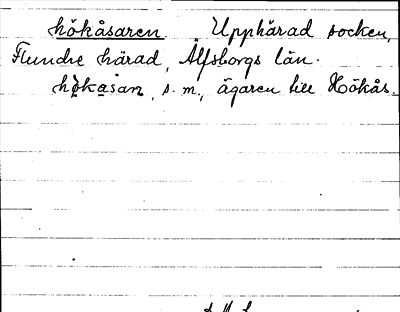 hökåsaren. Upphärad socken,
Flundre härad, Älfsborgs län.
hökasan, s. m., ägaren till Hökås.